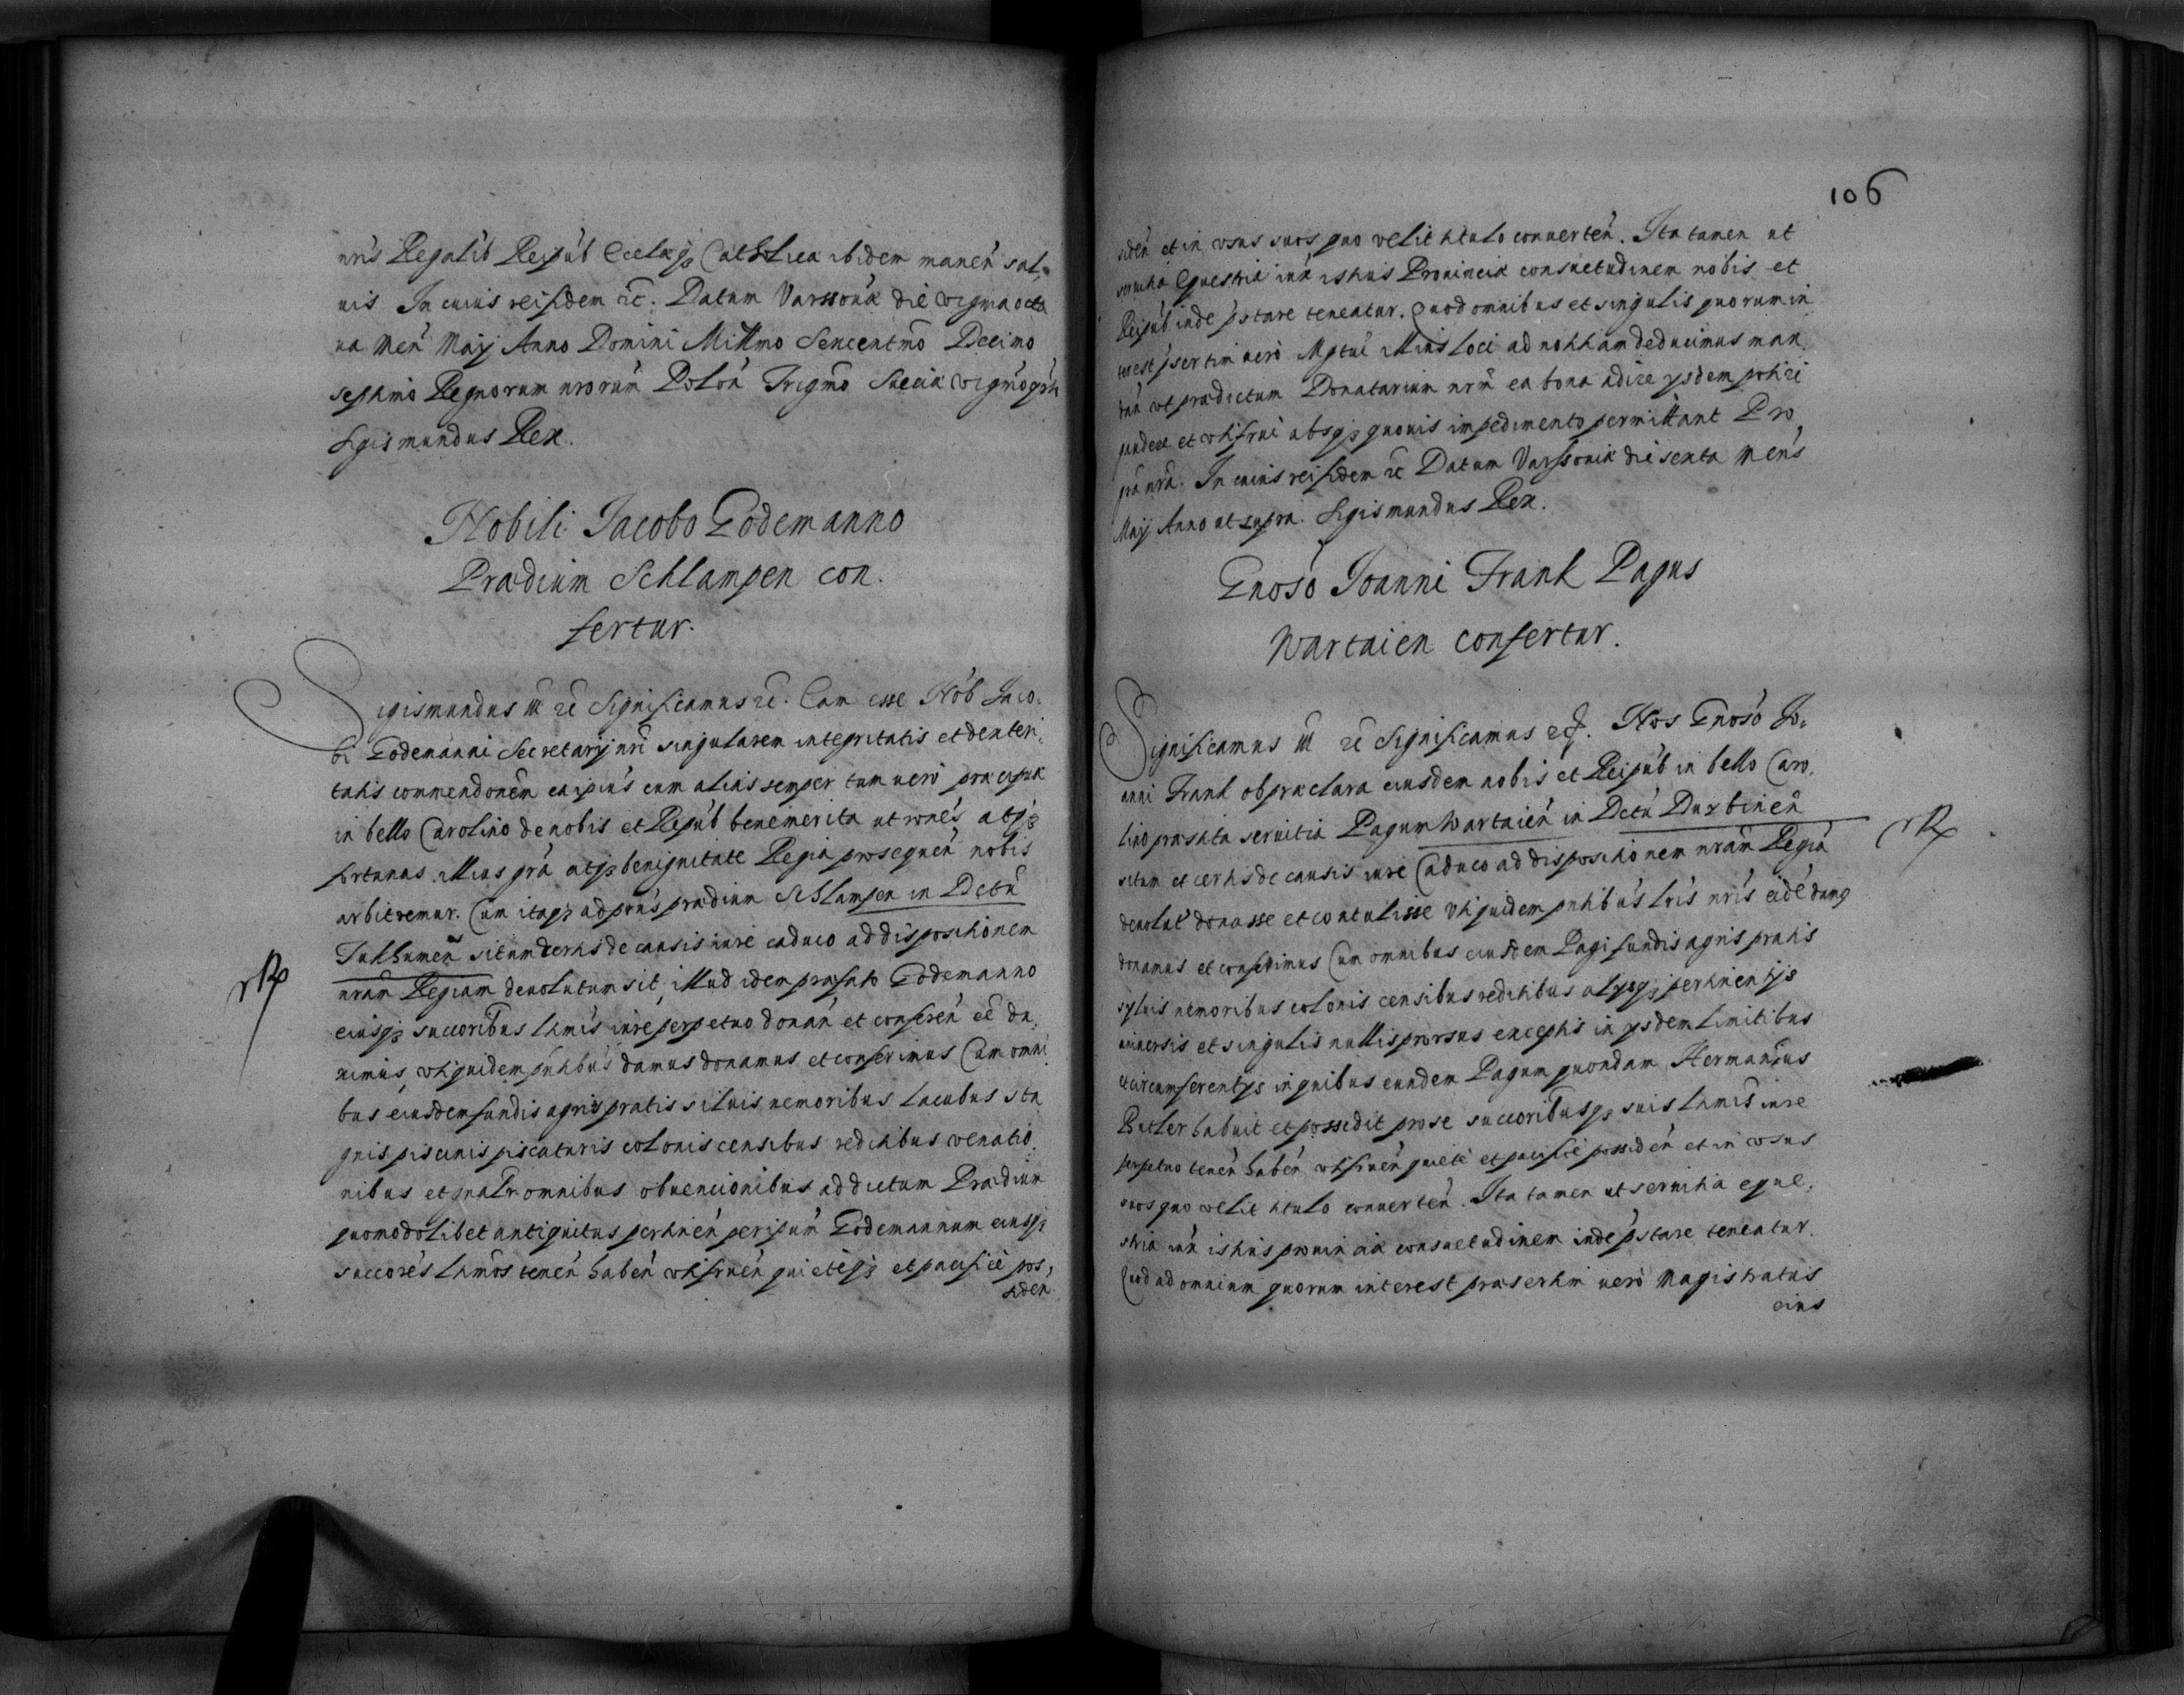 nris Regalib Reipub Ecclaq3 Catholica ibidem manen̄ sal-
uis In cuius rei fidem ec. Datum Varssouiæ die vigma octa
ua Men Maij Anno Domini Millmo Sexcentmo Decimo
septimo Regnorum nrorum Polon Trigmo Sueciæ vigmo grto
Sigismundus Rex.
Nobili Iacobo Godemanno
Prædium Schlampen con.
fertur.
Sigismundus III ec Significamus ec. Eam esse Nob Iaco.
bi Godemanni Secretarij nri singularem integritatis et dexteri.
tatis commendonem eaipius cum alias semper tum uero præcipuæ
in bello Carolino de nobis et Repub benemerita ut rones atq3
fortunas illius gra atq3 benignitate Regia prosequen nobis
arbitremur. Cum itaq3 ad pns prædium Schlampen in Dctu
Tukhumen situm certis de causis iure caduco ad dispositionem
nram Regiam deuolutum sit, illud idem præfato Godemanno
eiusq3 succoribus ltmis iure perpetuo donan et conferen ee du.
ximus, vti quidem pntibus damus donamus et conferimus Cum omni
bus eiusdem fundis agris pratis siluis nemoribus lacubus sta
gnis piscinis piscaturis colonis censibus reditibus venatio
nibus et gnalr omnibus obuencionibus ad dictum Prædium
quomodolibet antiquitus pertinen per ipsum Godemannum eiusq3
succores ltmos tenen haben vtifruen quieteq3 et pacifice pos,
siden
106
siden et in vsus suos quo velit titulo conuerten. Ita tamen ut
seruitia Equestria iuxa istius Prouinciæ consuetudinem nobis et
Reipub inde pstare teneatur. Quod omnibus et singulis quorum in
terest psertim uero Mgtui illius loci ad notitiam deducimus man
dan vt prædictum Donatarium nrm ea bona adire ysdem potiri
gaudere et vtifrui absq3 quouis impedimento permittant Pro
gra nra. In cuius rei fidem ec Datum Varssouiæ die sexta Mens
Maij Anno ut supra. Sigismundus Rex.
Gnoso Ioanni Frank Pagus
Wartaien confertur.
Significamus III ec Significamus ec. Nos Gnoso Jo-
anni Frank ob præclara eiusdem nobis et Reipub in bello Caro.
lino præstita seruitia Pagum Wartaien in Dctu Durbinen
situm et certis de causis iure Caduco ad dispositionem nram Regia
deuolut donasse et contulisse Vti quidem pntibus lris nris eide damq
donamus et conferimus Cum omnibus eiusdem Pagi fundis agris pratis
syluis nemoribus colonis censibus reditibus alysq3 pertinentijs
uniuersis et singulis nullis prorsus exceptis in ysdem limitibus
et circumferentijs in quibus eundem Pagum quondam Hermanus
Butler habuit et possedit pro se succoribusq3 suis ltmis iure
perpetuo tenen haben vtifruen quiete et pacifice possiden et in vsus
suos quo velit titulo conuerten. Ita tamen ut seruitia eque,
stria iux istius prouinciæ consuetudinem inde pstare teneatur.
Quod ad omnium quorum interest præsertim uero Magistratus
eius